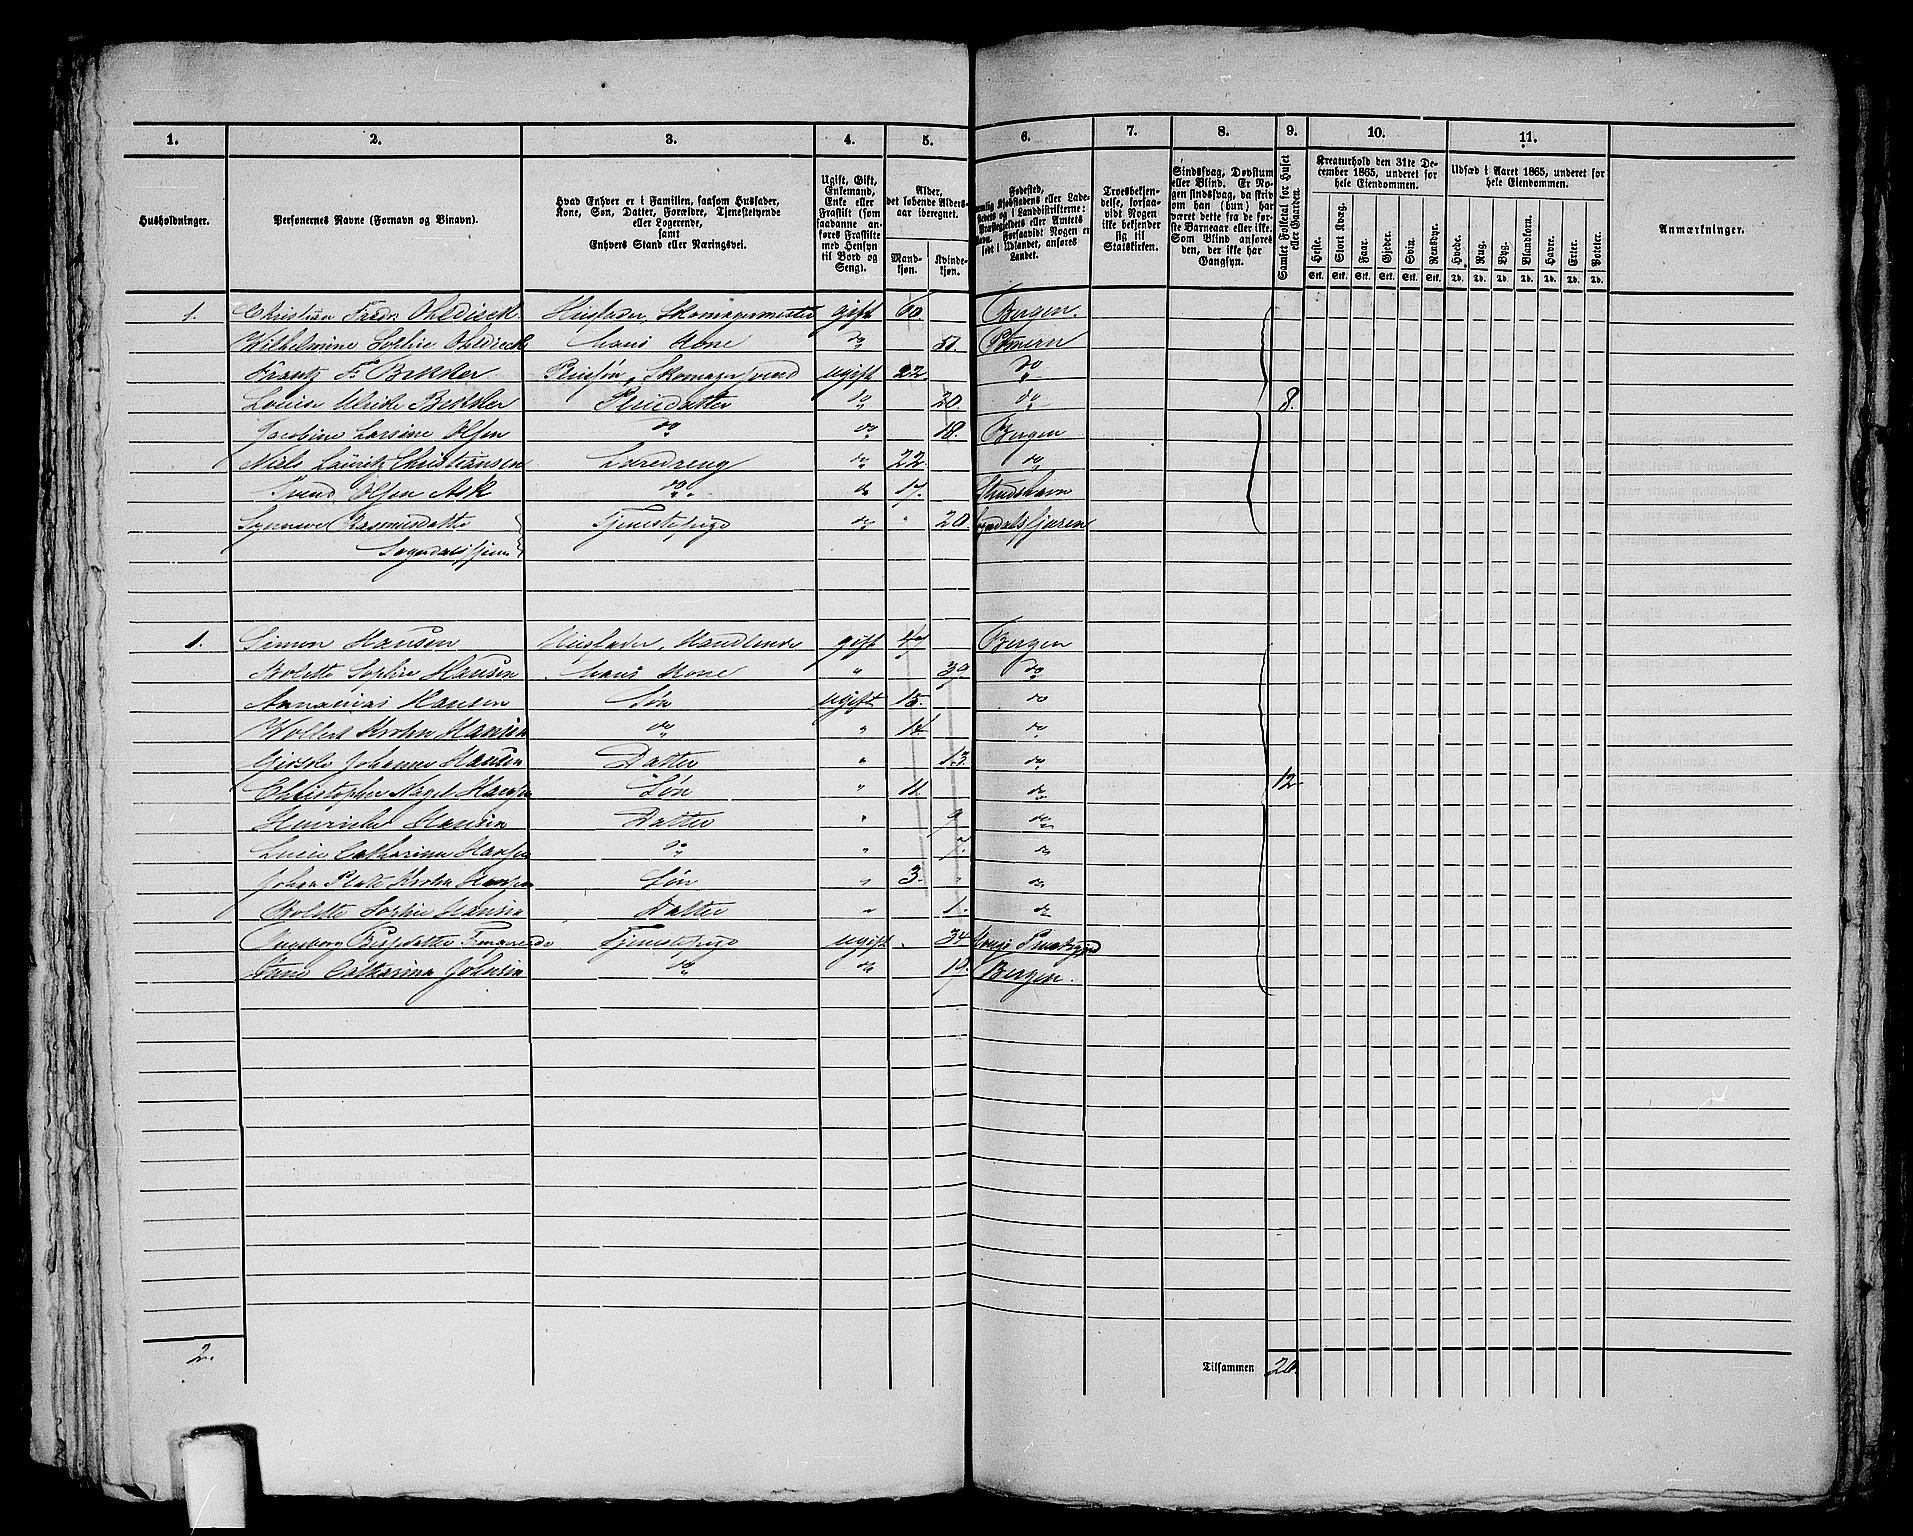 1. 2. 3. 4. 5. 6. 7. 8. 9. 10. 11.
Husholdninger.
Personernes Navne (Fornavn og Binavn).
Hvad Enhver er i Familien, saasom Husfader, Kone, Søn, Datter, Forældre, Tjenestetyende eller Logerende, samt Enhvers Stand eller Næringsvei.
Ugift, Gift, Enkemand, Enke eller Fraskilt (som saadanne anføres Fraskilte med Hensyn til Bord og Seng).
Alder, det løbende Aldersaar iberegnet.
Mandkjøn. Kvindekjøn.
Fødested, Landet.
Troesbekjendelse, forsaavidt Nogen ikke bekjender sig til Statskirken.
Sindssvag, Døvstum eller Blind. Er Nogen sindssvag, da skriv om han (hun) har været dette fra de første Barneaar eller ikke. Som Blind ansøres den, der ikke har Gangsyn.
Samlet Folketal for Huset eller Gaarden.
Kreaturhold den 31te December 1865, underet for hele Eiendommen.
Heste. Stort Kvæg. Faar. Gjeder. Svin. Rensdyr.
Stk. Stk. Stk. Stk. Stk. Stk.
Udsæd i Aaret 1865, underet for hele Eiendommen.
Hvede. Rug. Byg. Blandkorn. Havre. Erter. Poteter.
Td. Td. Td. Td. Td. Td. Td.
Anmærkninger.
1. Christian Fredr. Ohldieck. Husfader, Skomagermester gift 60. Bergen.
Wilhelmine Sophie Ohldieck hans Kone do 51. Pomern
Frantz F. Bekker Pleiesøn, Skomagersvend ugift 22. do
Louise Ulrike Bekker Pleiedatter do 20. do 8.
Jacobine Larsine Olsen do do 18. Bergen
Niels Lauritz Christiansen Læredreng do 22. do
Svend Olsen Ask do do 17.
Rasmusdatter Tjenestepige do " 20. Sogndalsfjæren
Sogndalsfjæren
1. Simon Hansen Husfader, Handlende gift Bergen
Bolette Sophie Hansen hans Kone " 39 do
Annanias Hansen Søn ugift 15. do
Wollert Krohn Hansen do " 14 do
Gieske Johanne Hansen Datter " 13. do
Christopher Nagel Hansen Søn " 11. do 12.
Henrikke Hansen Datter " 9. do
Lucie Catharina Hansen do " 7. do
Johan Krohn Hansen Søn " 3. " do
Bolette Sophie Hansen Datter " 1. do
Ingeborg Tjenestepige ugift " 34
Anne Catharina Johnsen do do 19. Bergen.
2. Tilsammen 20.